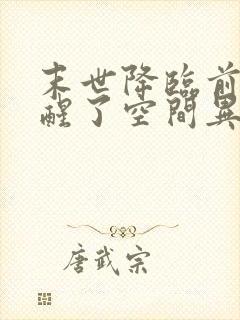 末世降臨前
醒了空間異
唐武宗